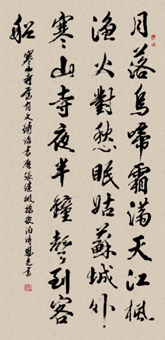 月落烏啼霜滿天江楓
漁火對愁眠姑蘇城外
寒山寺夜半鐘聲到客
船
寒山寺舊有文待詔書唐張繼楓橋夜泊詩